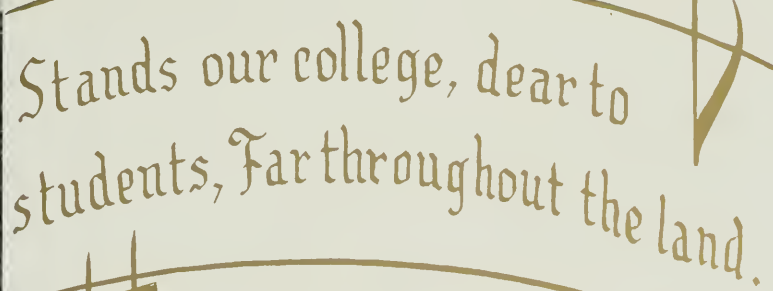 Stands our college, dear to
students, Far throughout the land.